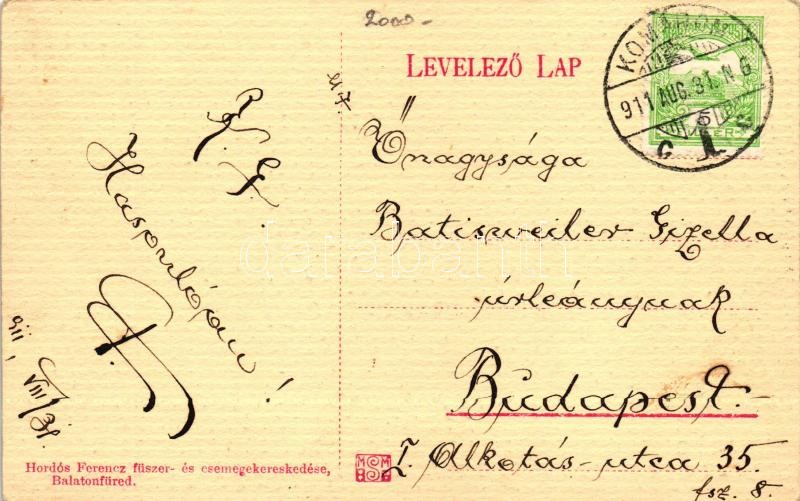 2000-
LEVELEZŐ LAP
KOMÁROM
911 AUG. 31. N 6
5
C 1
Őnagysága
Batisweiler Gizella
úrleánynak
Budapest.
I. Alkotás-utca 35.
fsz. 8.
Hasonlóan!
911, VIII/31
Hordós Ferencz fűszer- és csemegekereskedése,
Balatonfüred.
darabanth